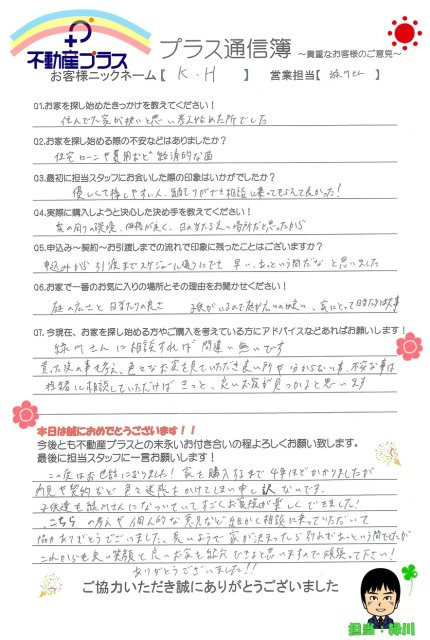 不動産プラス
プラス通信簿 ～貴重なお客様のご意見～
お客様ニックネーム【 K.H 】 営業担当【 緑川さん 】
01.お家を探し始めたきっかけを教えてください！
住んでた家が狭いと思い考え始めた所でした
02.お家を探し始める際の不安などはありましたか？
住宅ローンや費用など経済的な面
03.最初に担当スタッフにお会いした際の印象はいかがでしたか？
優しくて接しやすい人、相談に乗ってもらえて良かった！
04.実際に購入しようと決心した決め手を教えてください！
家の周りの環境、価格が良く、日の当たる良い場所だと思ったから
05.申込み～契約～お引渡しまでの流れで印象に残ったことはございますか？
申込みから引渡までスケジュール通りにでき 早い、あっという間だなと思いました
06.お家で一番のお気に入りの場所とその理由をお聞かせください！
庭の広さと日当たりの良さ 子供がいるので庭が広いのが良い、家にとって日当たりは大事
07.今現在、お家を探し始める方やご購入を考えている方にアドバイスなどあればお願いします！
緑川さんに相談すれば間違い無いです
買った後の事も考え、色々なお家を見ていただき良い所や分からない事、不安な事は
担当に相談していただければきっと、良いお家が見つかると思います
本日は誠におめでとうございます！！
今後とも不動産プラスとの末永いお付き合いの程よろしくお願い致します。
最後に担当スタッフに一言お願いします！
この度はお世話になりました！家を購入するまで4年ほどかかりましたが
内見や契約など色々迷惑をかけてしまい申し訳ないです。
子供達も緑川さんになついていてすごくお家探しが楽しくできました！
こちらの考えや個人的な意見など細かく相談に乗っていただいて
ありがとうございました。長いようで家が決まったら引渡しまであっという間でしたが
これからも良い笑顔と良いお家を紹介できると思いますので頑張って下さい！
ありがとうございました！！
ご協力いただき誠にありがとうございました
担当・緑川